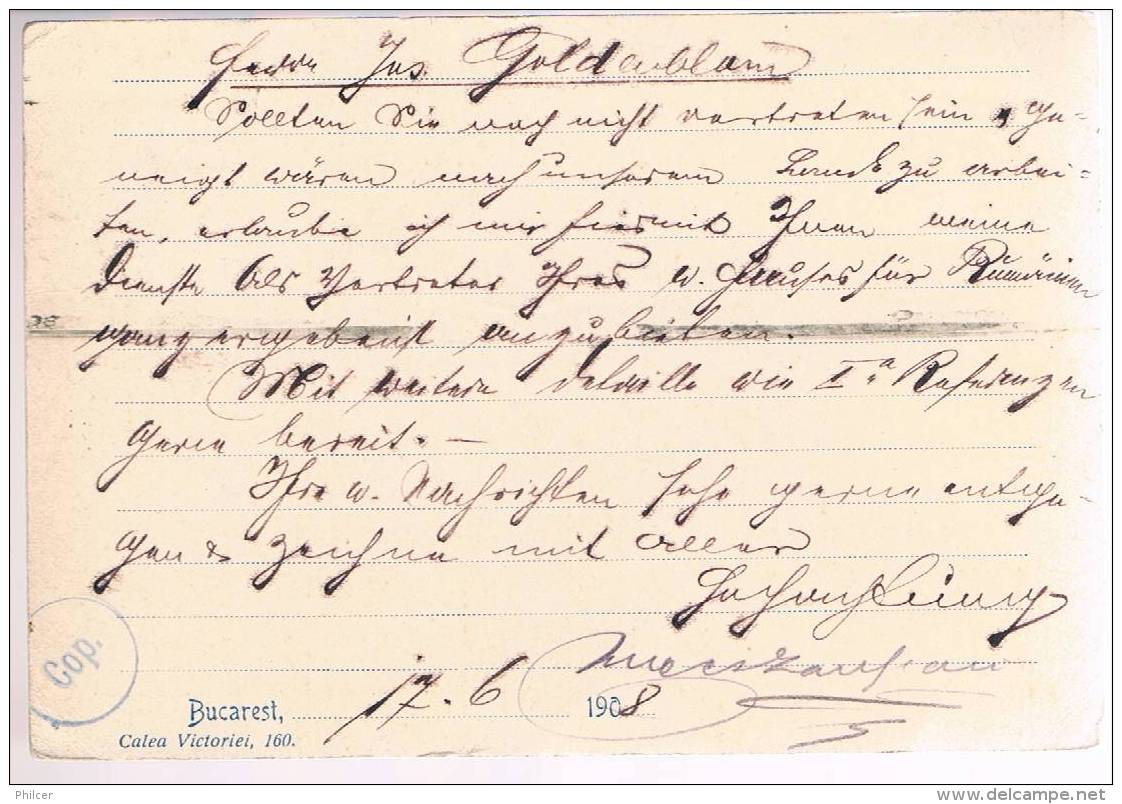 Herrn Jos. Goldarblam
Sollten Sie noch nicht vertreten sein & ge-
neigt wären nach unserem Lande zu arbei-
ten, erlaube ich mir hiermit Ihnen meine
Dienste als Vertreter Ihres w. Hauses für Rumänien
ganz ergebenst anzubieten.
Mit weitere detaille wie Iª Referenzen
gerne bereit. —
Ihre w. Nachrichten sehe gerne entge-
gen & zeichne mit aller
Hochachtung
17. 6 1908
Bucarest,
Calea Victoriei, 160.
Cop.
Philcer
delcampe.net